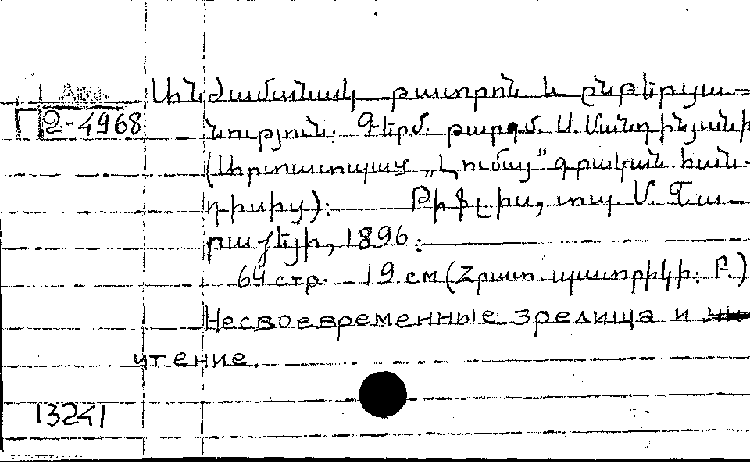 Անժամանակ թատրոն և ընթերցա-
Г 2-4968 նություն. Գերմ. թարգմ. Ս. Մանդինյանի
(Արտատպած „Լումայ" գրական հան-
դիսից): Թիֆլիս, տպ. Մ.
1896:
64 стр. 19 см (Հրատ. պատրիկի. Բ.)
Несвоевременные зрелища и
чтение.
13241